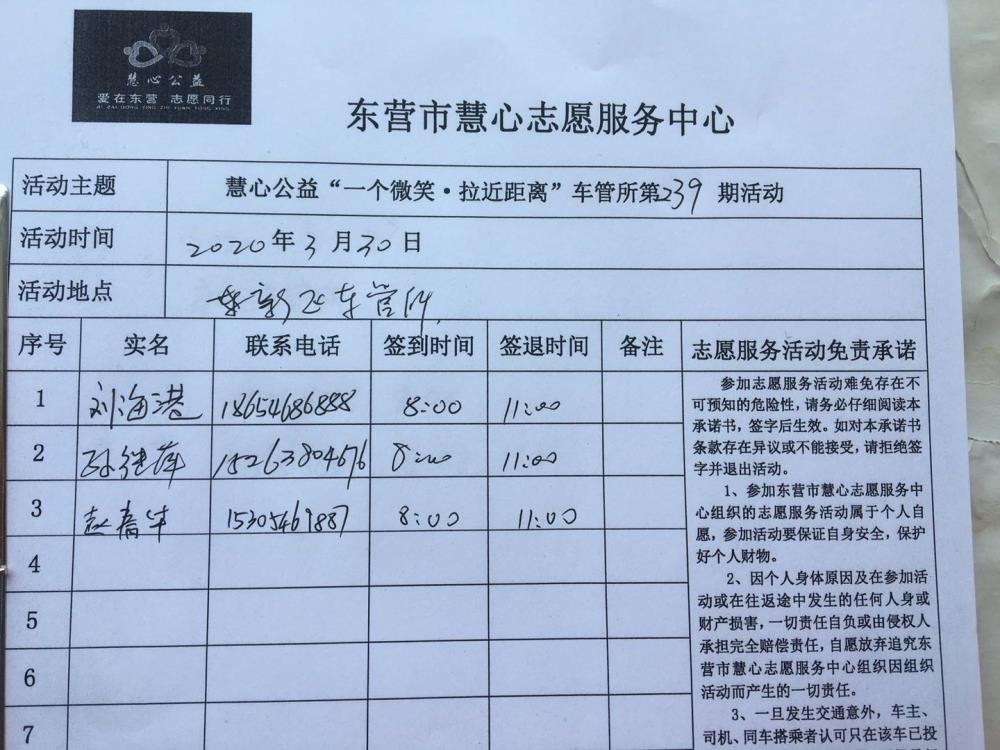 慧心公益
爱在东营 志愿同行
AI ZAI DONG YING ZHI YUAN TONG XING
东营市慧心志愿服务中心
活动主题 慧心公益“一个微笑·拉近距离”车管所第239 期活动
活动时间 2020年3月30日
活动地点 车管所
序号 实名 联系电话 签到时间 签退时间 备注 志愿服务活动免责承诺
1 刘海港 18654686888 8:00 11:00
2 孙继萍 15263804676 8:00 11:00
3 赵春华 15305469887 8:00 11:00
4
5
6
7
参加志愿服务活动难免存在不
可预知的危险性，请务必仔细阅读本
承诺书，签字后生效。如对本承诺书
条款存在异议或不能接受，请拒绝签
字并退出活动。
1、参加东营市慧心志愿服务中
心组织的志愿服务活动属于个人自
愿，参加活动要保证自身安全，保护
好个人财物。
2、因个人身体原因及在参加活
动或在往返途中发生的任何人身或
财产损害，一切责任自负或由侵权人
承担完全赔偿责任，自愿放弃追究东
营市慧心志愿服务中心组织因组织
活动而产生的一切责任。
3、一旦发生交通意外，车主、
司机、同车搭乘者认可只在该车已投